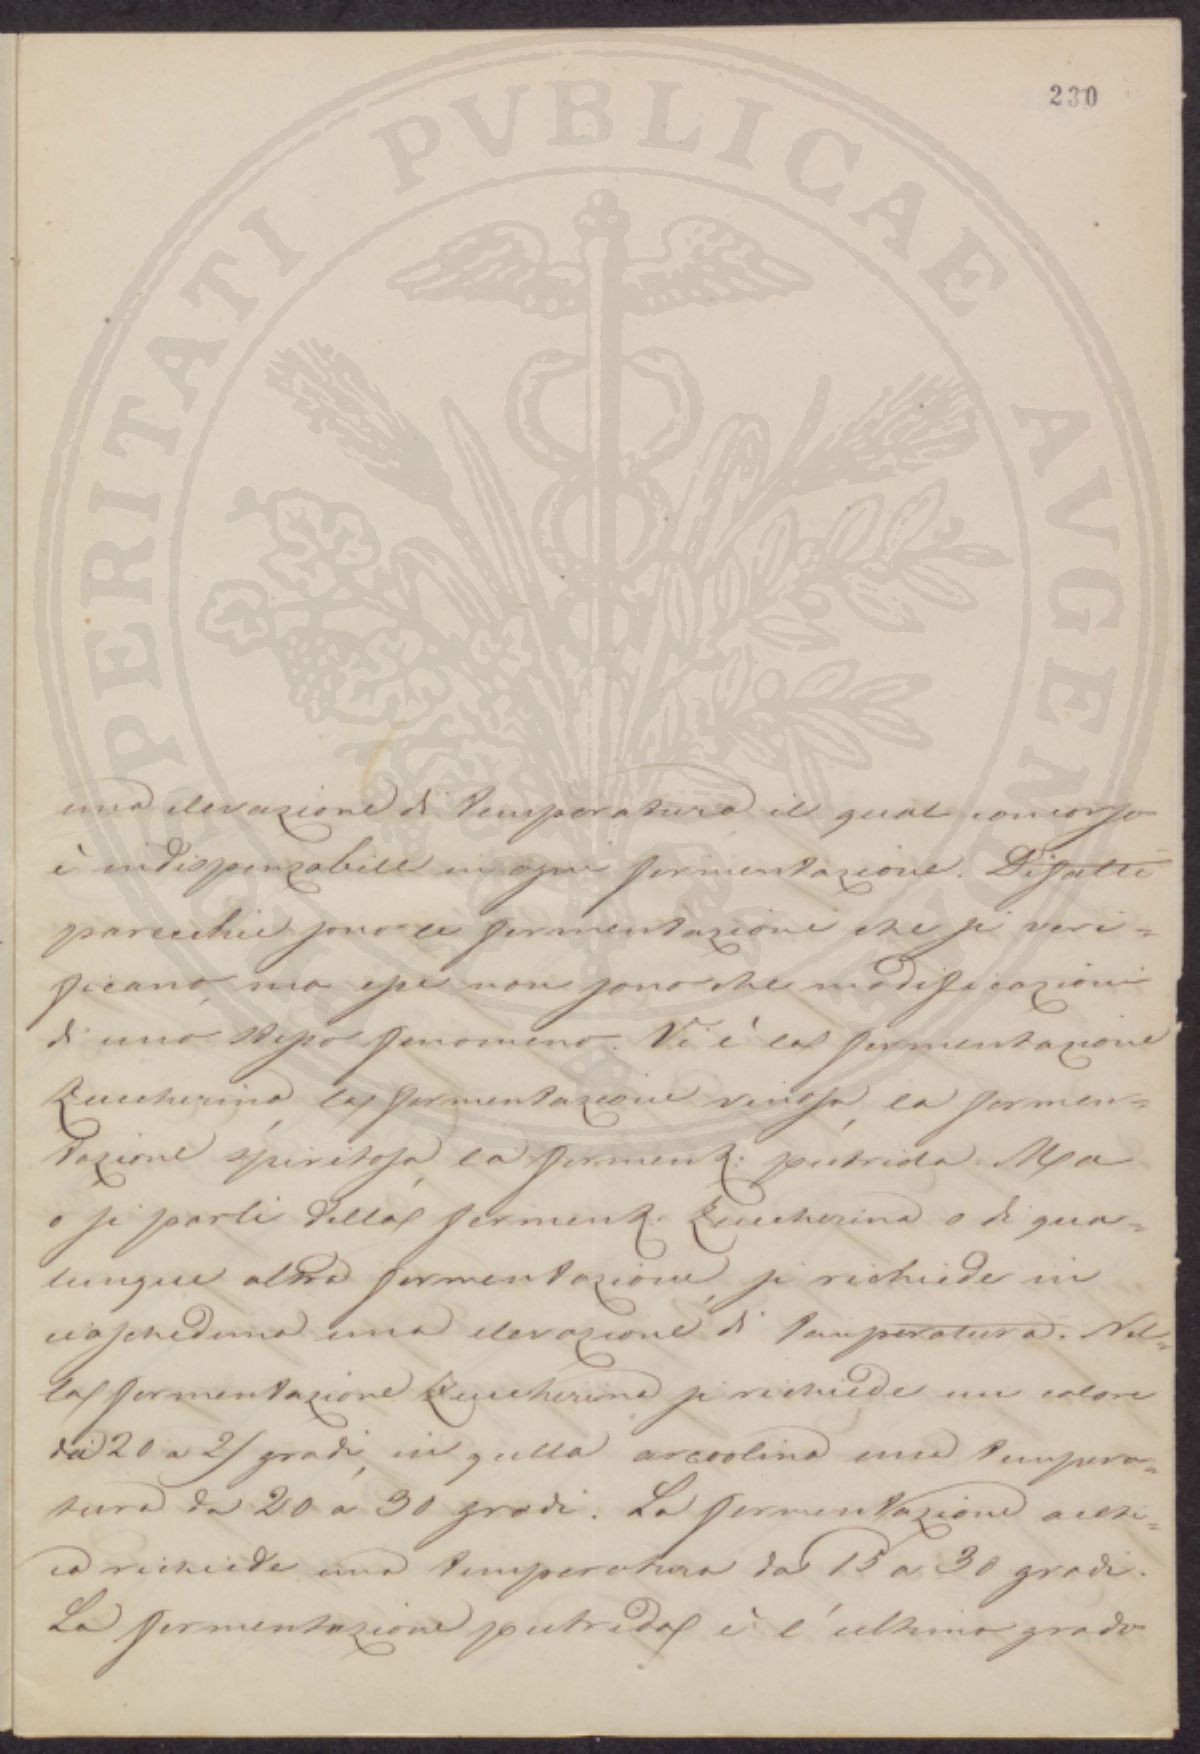 230
PROSPERITATI PVBLICAE AVGENDAE
una elevazione di temperatura il qual concorso
è indispensabile in ogni fermentazione. Difatti
parecchie sono le fermentazioni che si veri=
ficano, ma esse non sono che modificazioni
di uno stesso fenomeno. Vi è la fermentazione
zuccherina, la fermentazione vinosa, la fermen=
tazione spiritosa, la ferment: putrida. Ma
o si parli della ferment. zuccherina o di qua=
lunque altra fermentazione, si richiede in
ciascheduna una elevazione di temperatura. Nel=
la fermentazione zuccherina si richiede un calore
dai 20 a 25 gradi, in quella arcoolina una tempera=
tura da 20 a 30 gradi. La fermentazione aceti=
ca richiede una temperatura da 15 a 30 gradi.
La fermentazione putrida è l'ultimo grado